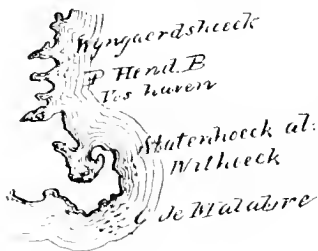 Wyngaerdshoeck
P Hend. B
Vos haven
Statenhoeck al:
Withoeck
C de Malabre